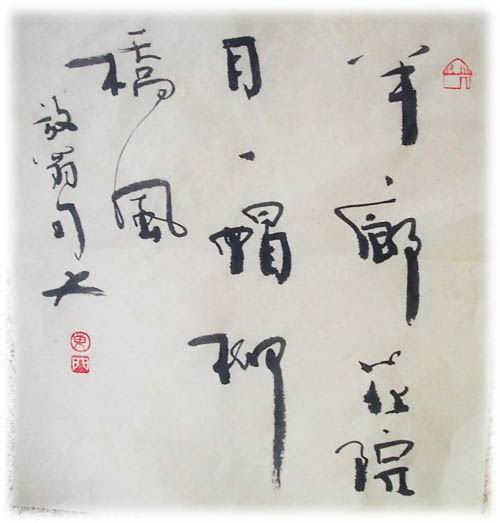 半廊花院
月一帽柳
橋風
放翁句